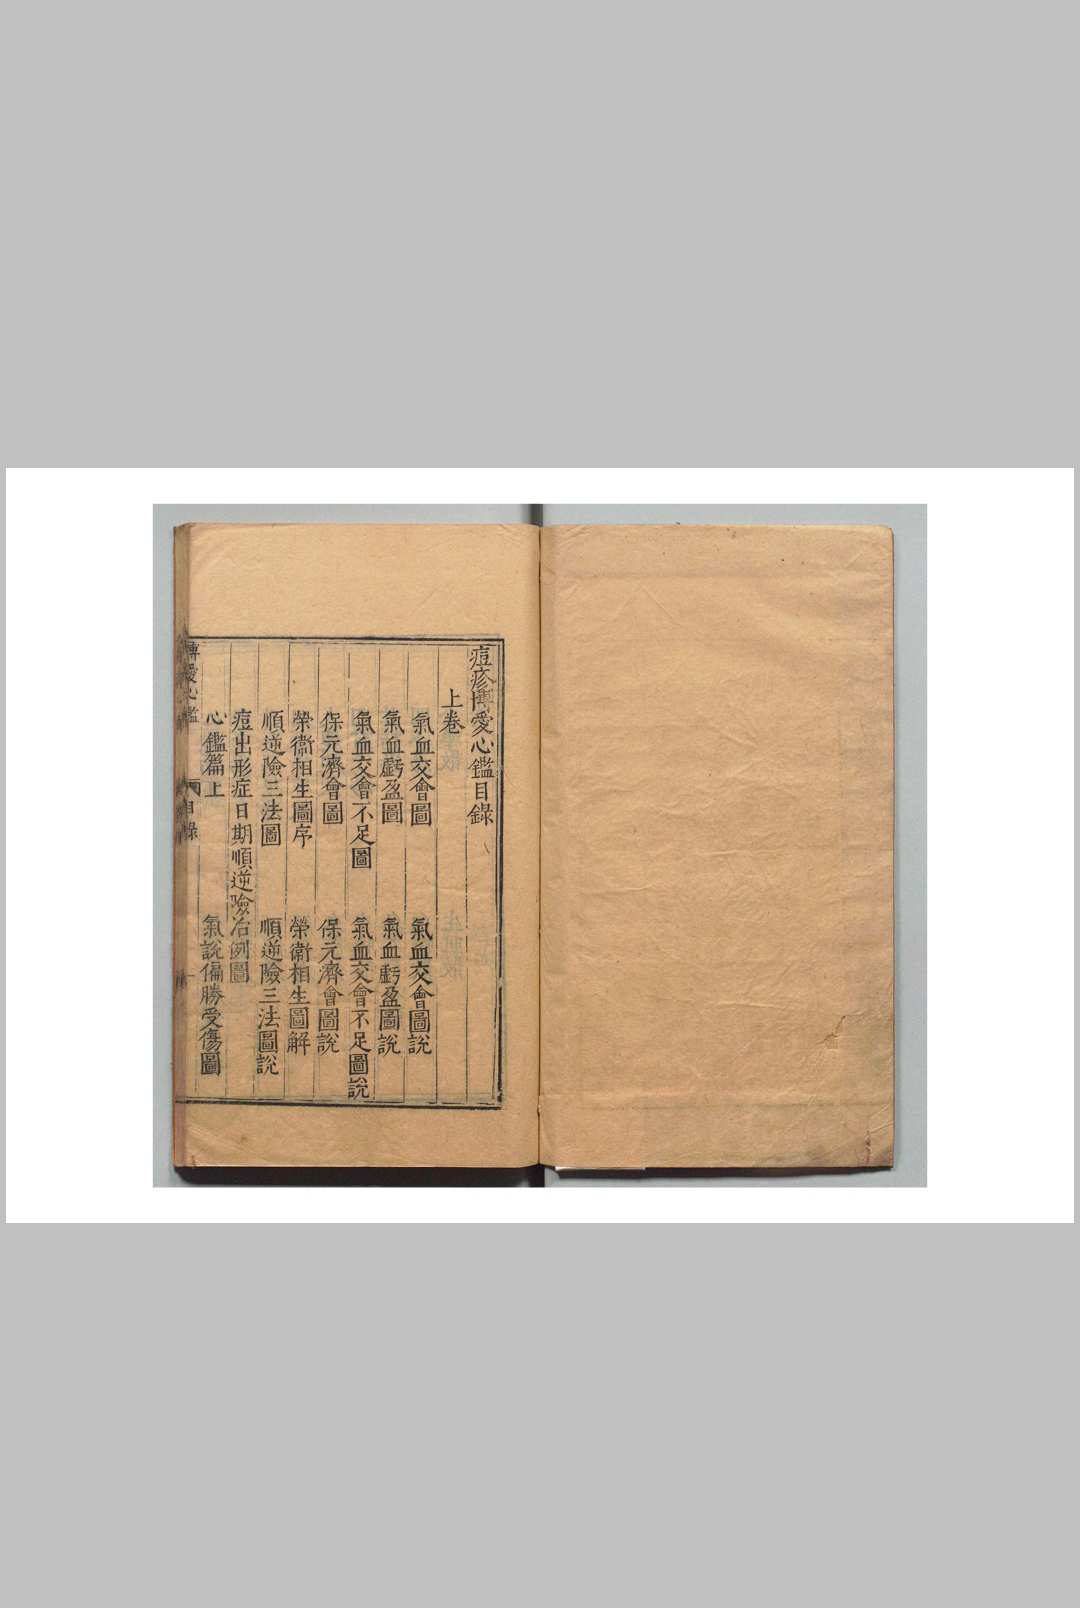 痘疹博愛心鑑目錄
上卷
氣血交會圖　氣血交會圖說
氣血虧盈圖　氣血虧盈圖說
氣血交會不足圖　氣血交會不足圖說
保元濟會圖　保元濟會圖說
榮衞相生圖序　榮衞相生圖解
順逆險三法圖　順逆險三法圖說
痘出形症日期順逆險治例圖
心鑑篇上　氣說偏勝受傷圖
博愛心鑑　目錄